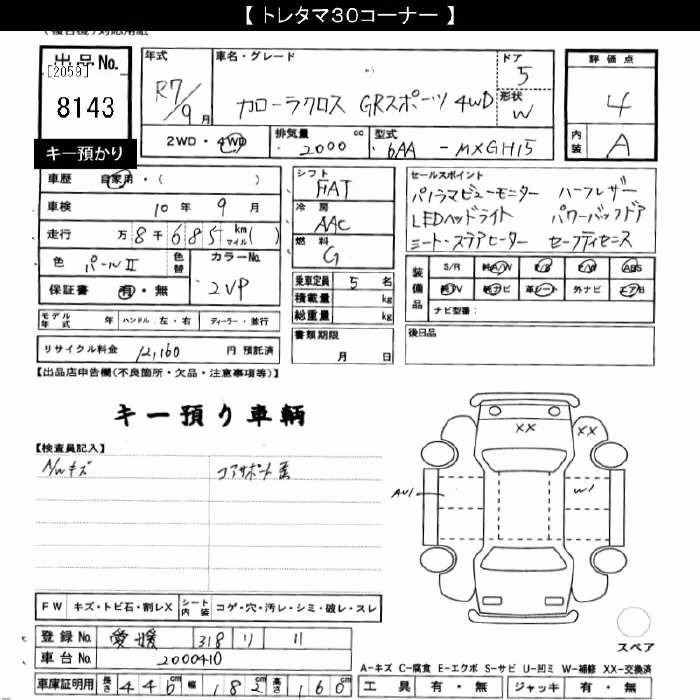 【 トレタマ30コーナー 】
出品No.
[2059]
8143
キー預かり
年式
R7/9月
車名・グレード
カローラクロス GRスポーツ 4WD
ドア
5
形状
W
評価点
4
内装
A
2WD・4WD
排気量 2000 cc
型式 6AA - MXGH15
車歴 自家用・( )
車検 10年 9月
走行 万8千685 km マイル( )
色 パールⅡ
色替
カラーNo. 2VP
保証書 有・無
シフト FAT
冷房 AAC
燃料 G
乗車定員 5 名
積載量 kg
総重量 kg
書類期限
月 日
セールスポイント
パノラマビューモニター ハーフレザー
LEDヘッドライト パワーバックドア
シート・ステアヒーター セーフティセンス
装備品
S/R 純A/W P/S P/W ABS
純TV 純ナビ 革シート 外ナビ エアB
ナビ型番:
後日品
モデル年式 年 ハンドル 左・右 ディーラー・並行
リサイクル料金 12,160 円 預託済
【出品店申告欄(不良箇所・欠品・注意事項等)】
キー預り車輌
【検査員記入】
N/Wキズ
コアサポート歪
XX XX
AU1 W1
FW キズ・トビ石・割レX シート内装 コゲ・穴・汚レ・シミ・破レ・スレ
スペア
登録No. 愛媛 318 リ 11
車台No. 2000410
車庫証明用 長さ 446cm 幅 182cm 高さ 160cm
A-キズ C-腐食 E-エクボ S-サビ U-凹ミ W-補修 XX-交換済
工具 有・無 ジャッキ 有・無